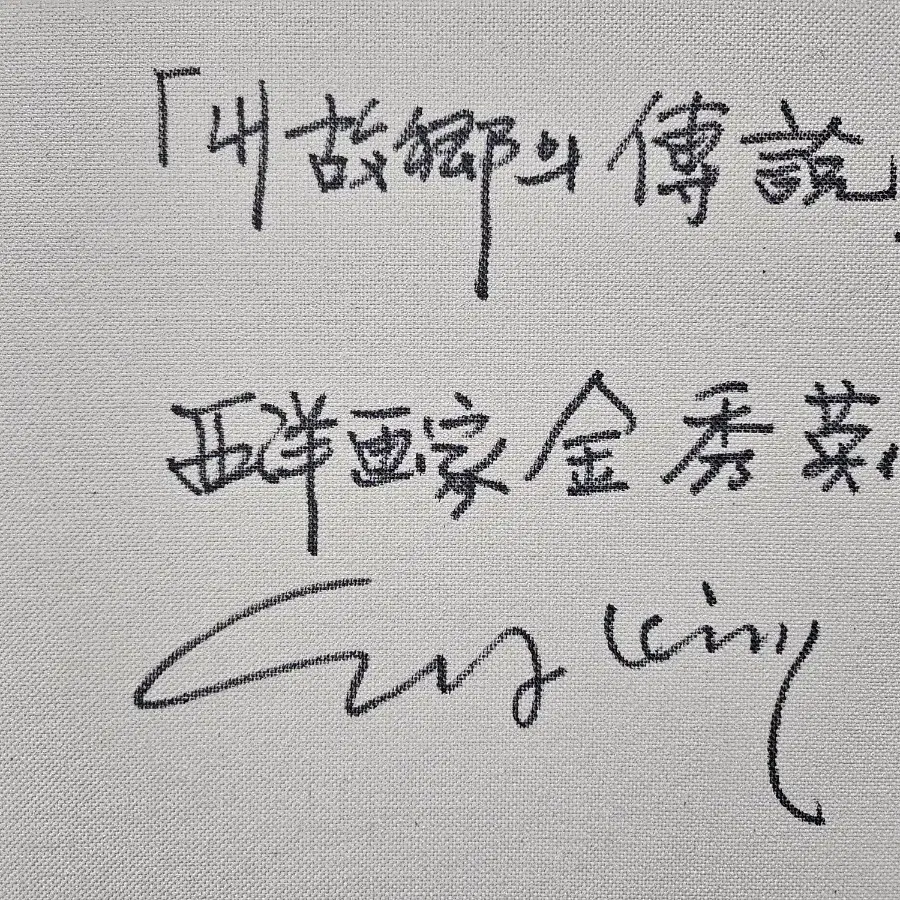 「내 故鄕의 傳說」
西洋画家 金秀英
Kim